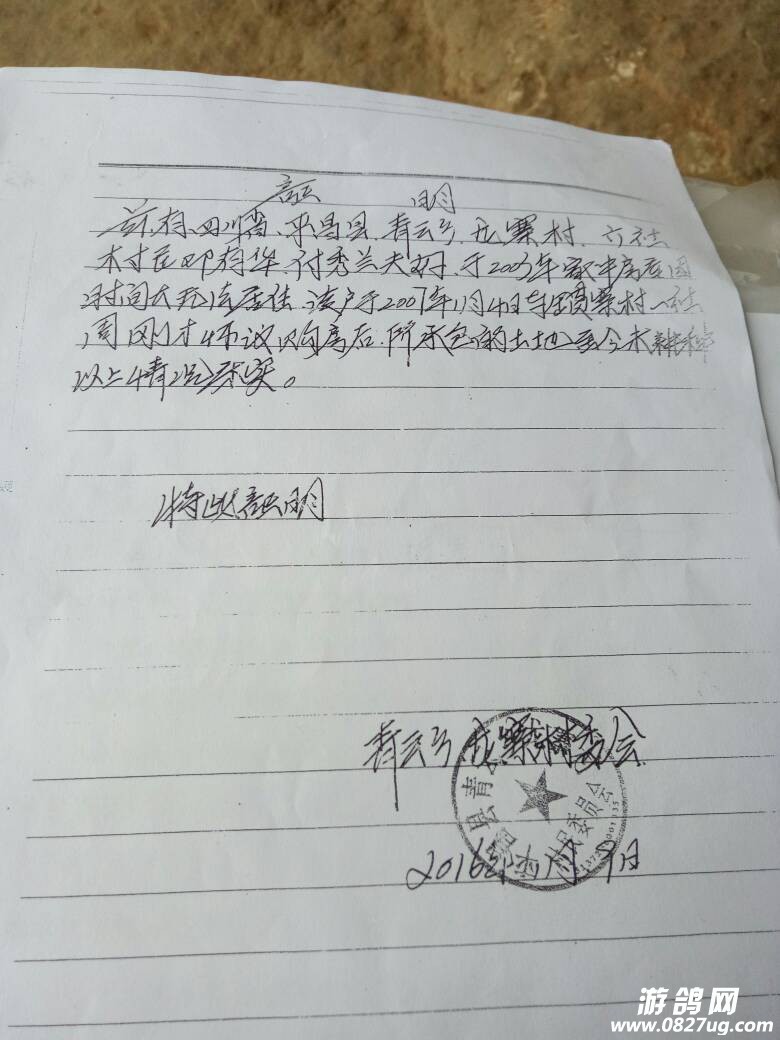 证 明
兹有四川省、平昌县、青云乡、寨村、六社
村 邓有华、付秀兰夫妇、于2003年 房屋因
时间 无法居住、该户于2007年1月4日与 寨村一社
周刚才 议购房后、所承包的土地至今未耕种
以上情况 实。
特此证明
青云乡 寨村委会
县青 村民委员会
2016年 月9日
游鸽网
www.0827ug.com